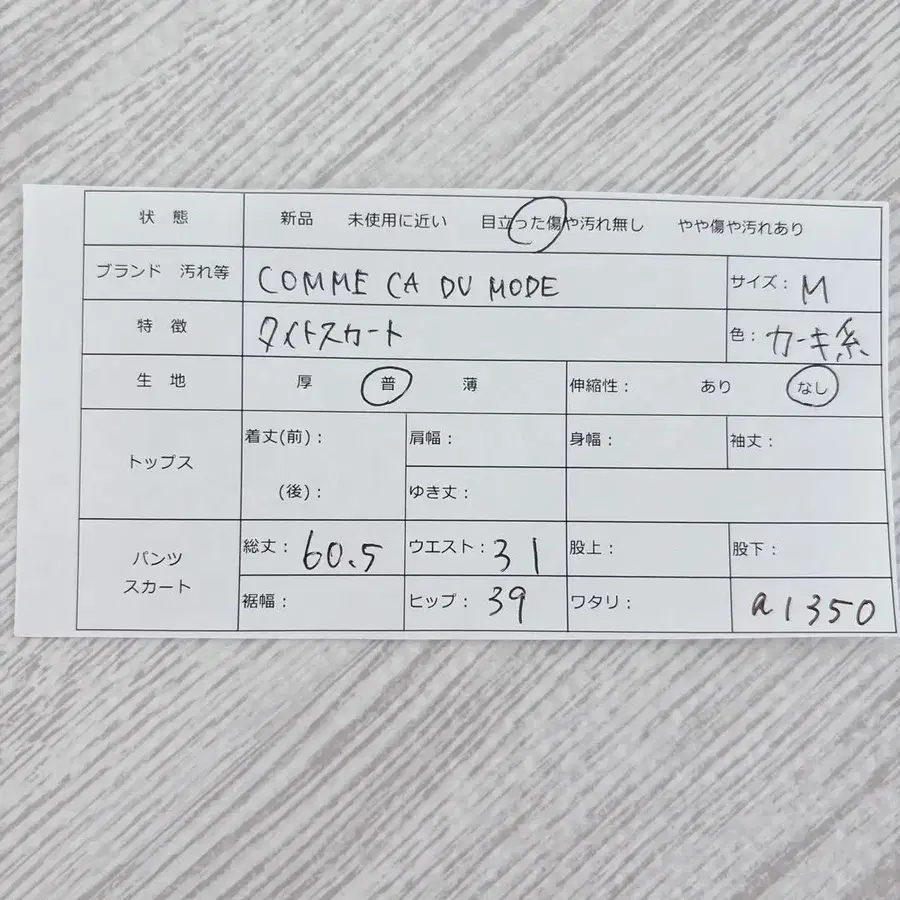 状 態 新品 未使用に近い 目立った傷や汚れ無し やや傷や汚れあり
ブランド 汚れ等 COMME CA DU MODE サイズ: M
特 徴 タイトスカート 色: カーキ系
生 地 厚 普 薄 伸縮性: あり なし
トップス 着丈(前): 肩幅: 身幅: 袖丈:
(後): ゆき丈:
パンツ スカート 総丈: 60.5 ウエスト: 31 股上: 股下:
裾幅: ヒップ: 39 ワタリ: a1350